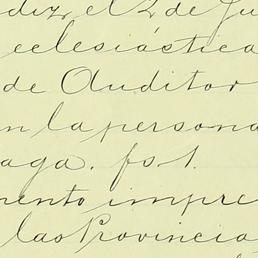 diz, el 2 de Ju
eclesiástica
de Auditor
n la persona
aga. fs 1.
mento impre
las Provincia